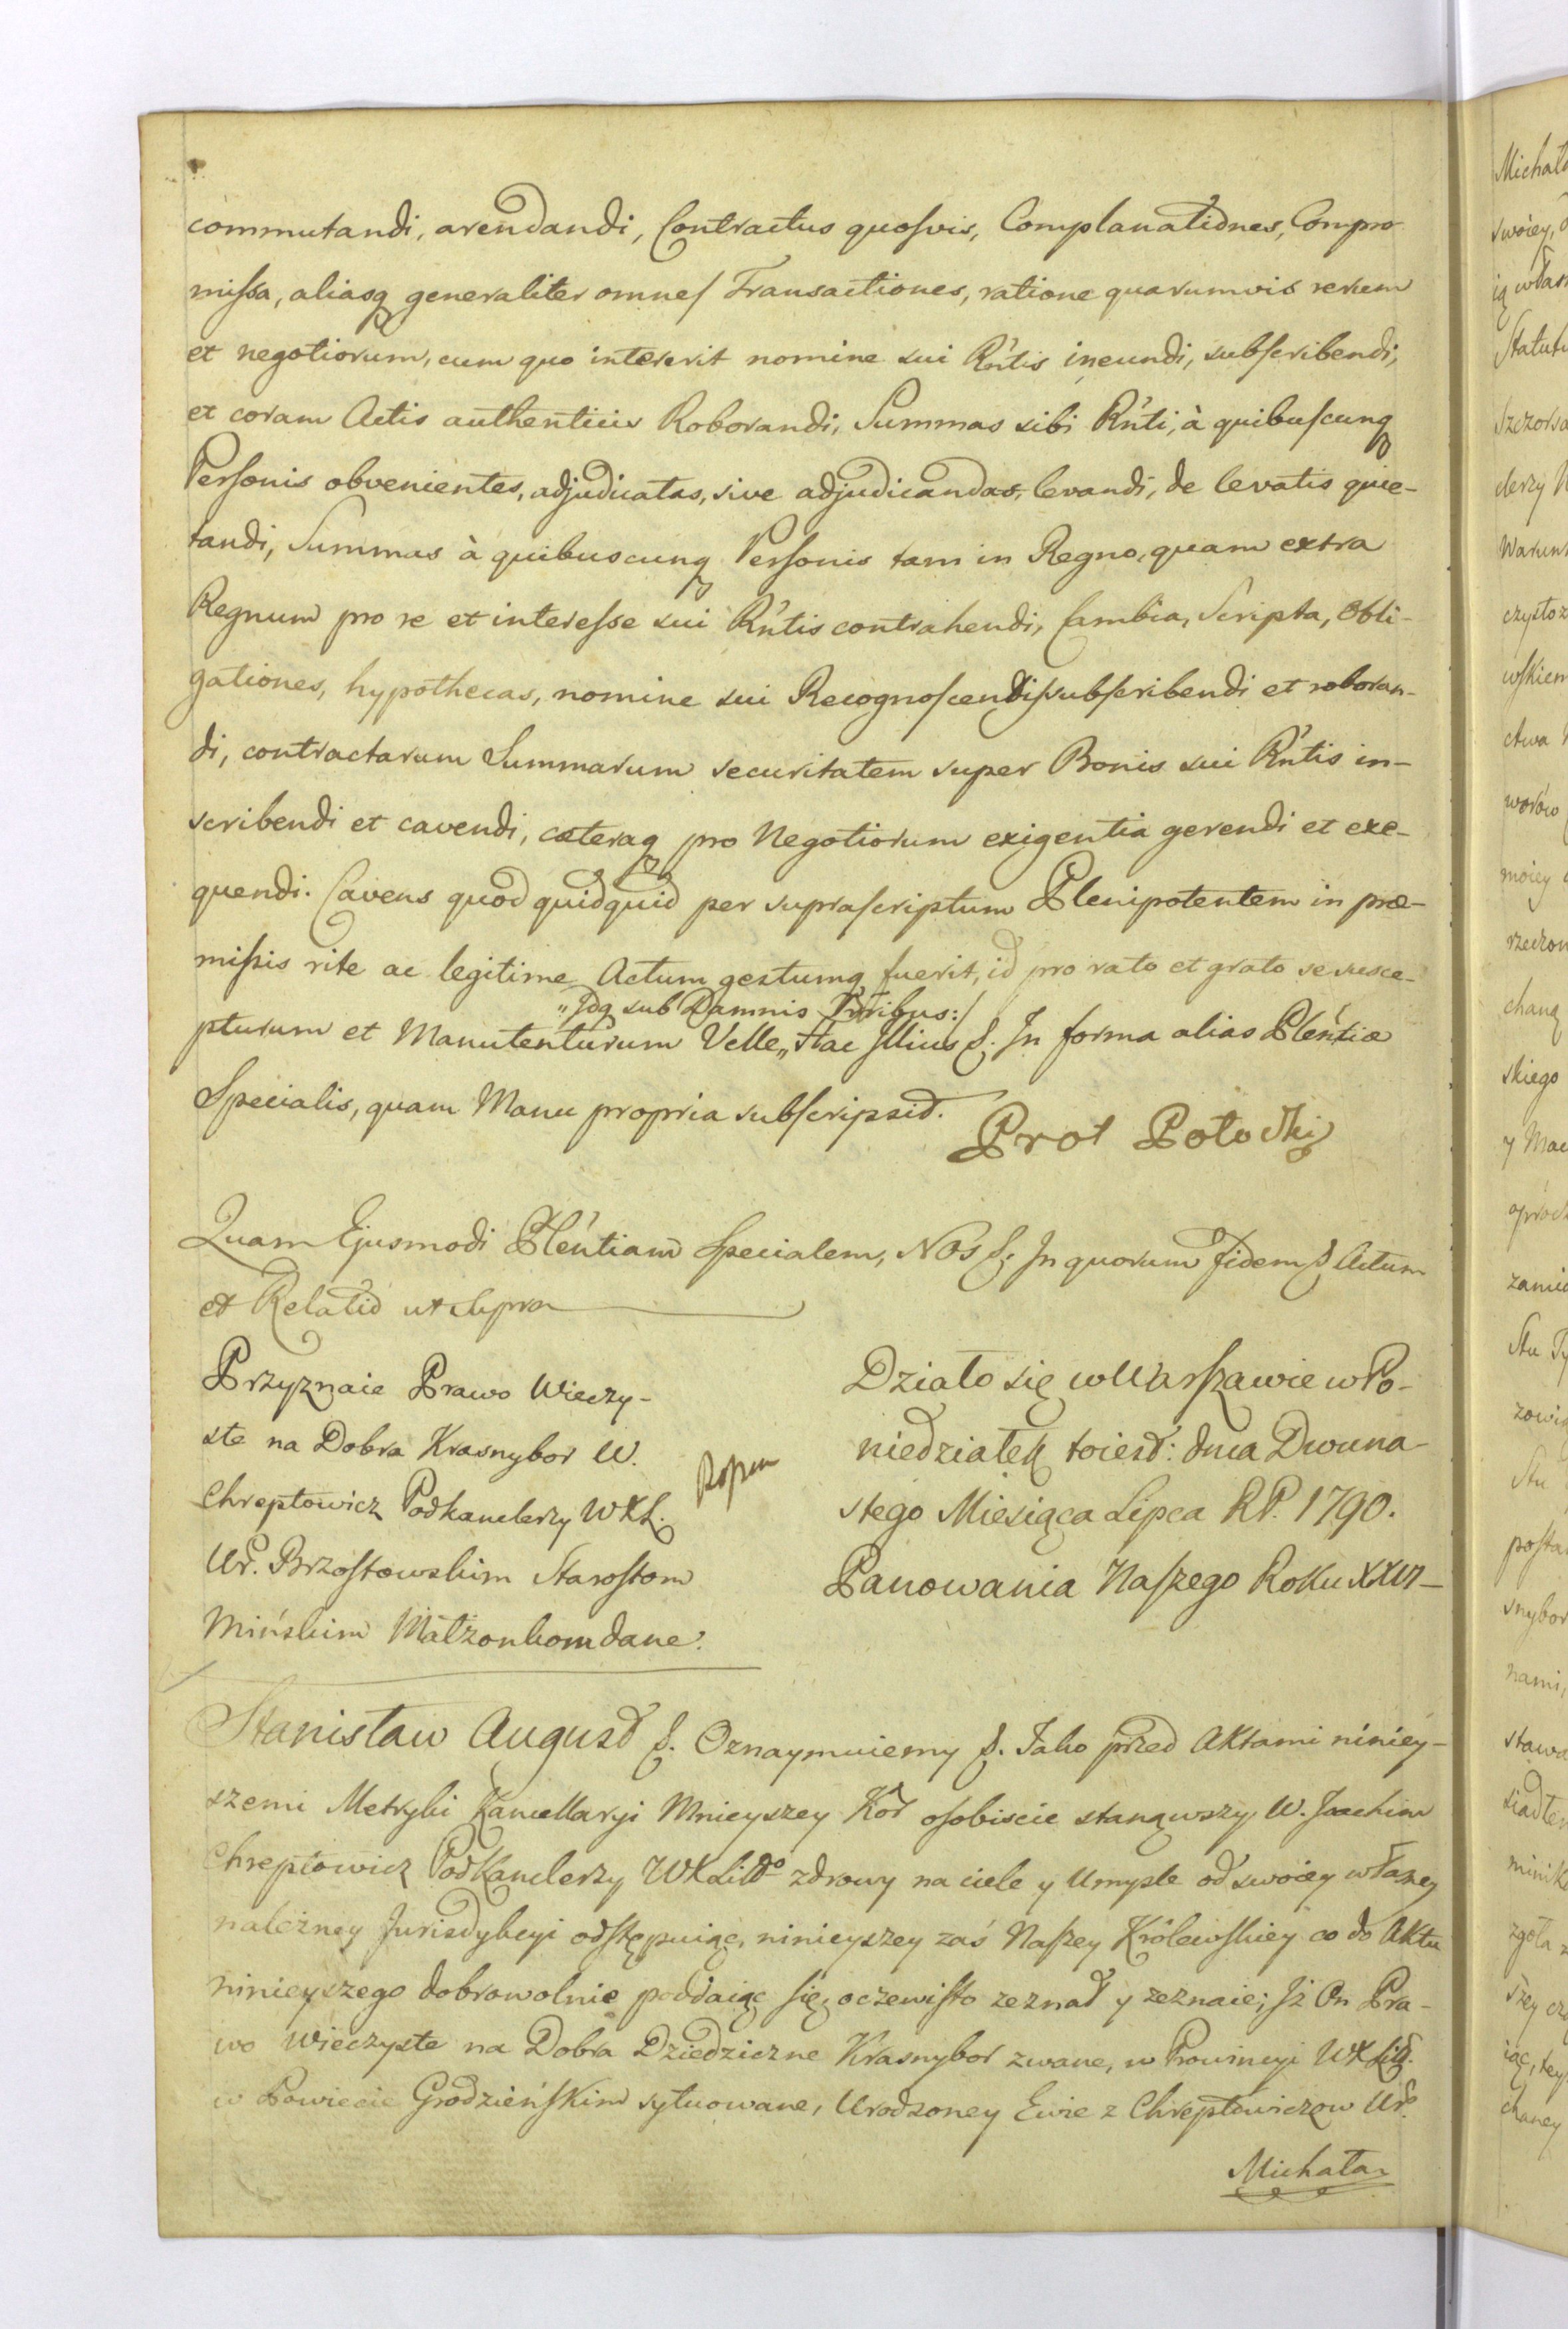 commutandi, arendandi, Contractus quosvis, Complanationes, Compro
missa, aliasq generaliter omnes Transactiones, ratione quarumvis rerum
et negotiorum, cum quo intererit nomine sui Rńtis ineundi, subscribendi,
et coram Actis authenticis Roborandi, Summas sibi Rńti, à quibuscunq
Personis obvenientes, adjudicatas, sive adjudicandas, levandi, de levatis quie-
tandi, Summas à quibuscunq Personis tam in Regno, quam extra
Regnum pro re et interesse sui Rńtis contrahendi, Cambia, Scripta, Obli-
gationes, hypothecas, nomine sui Recognoscendi, subscribendi et roboran-
di, contractarum Summarum securitatem super Bonis sui Rńtis in-
scribendi et cavendi, cæteraq pro Negotiorum exigentia gerendi et exe-
quendi. Cavens quod quidquid per suprascriptum Plenipotentem in præ-
missis rite ac legitime Actum gestumq fuerit, id pro rato et grato se susce-
„Idq sub Damnis Trribus:/
pturum et Manutenturum Velle„ Hac Illius &. In forma alias Pleńtiæ
Specialis, quam Manu propria subscripsid.
Prot Potocki
Quam Ejusmodi Pleńtiam Specialem, Nos &. In quorum fidem & Actum
et Relatio ut supra
Przyznaie Prawo Wieczy-
ste na Dobra Krasnybor W.
Chreptowicz Podkanclerzy WXL.
Ur. Brzostowskim Starostom
Mińskim Małżonkom dane.
Działo się w Warszawie w Po-
niedziałek toiest: dnia Dwuna-
stego Miesiąca Lipca RP. 1790.
Panowania Naszego Roku XXVI-
Stanisław August &. Oznaymuiemy &. Jako przed Aktami niniey-
szemi Metryki Kancellaryi Mnieyszey Kor osobiscie stanąwszy W. Joachim
Chreptowicz Podkanclerzy WXLitgo zdrowy na ciele y Umysle od swoiey własney
należney Jurisdykcyi odstępuiąc, ninieyszey zaś Naszey Królewskiey co do Aktu
ninieyszego dobrowolnie poddaiąc się, oczewisto zeznał y zeznaie; Iż On Pra-
wo Wieczyste na Dobra Dziedziczne Krasnybor zwane, w Prowincyi WXLitt.
w Powiecie Grodzieńskim sytuowane, Urodzoney Ewie z Chreptowiczow Ur.
Michała